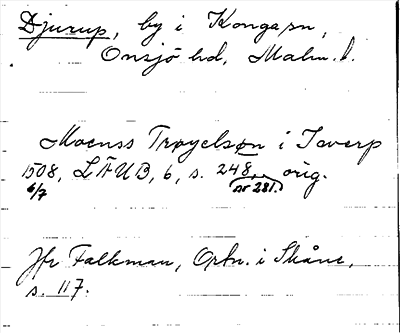 Djurup, by i Konga sn,
Onsjö hd, Malm. l.
Moenss Trøyelsøn i Iverp
1508, LÄUB, 6, s. 248, orig.
6/7 nr 281.
Jfr Falkman, Ortn. i Skåne,
s. 117.